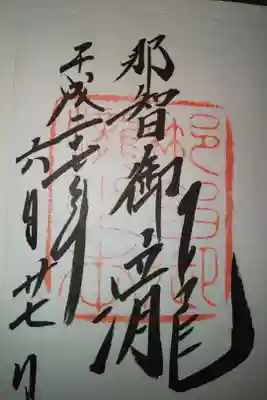 那智御瀧
平成二十七年
六月廿七日